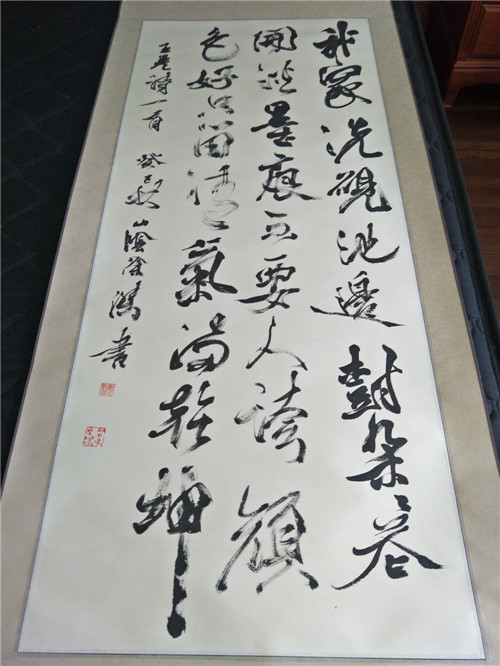 我家洗硯池邊樹朵〻花
開淡墨痕不要人誇顏
色好只留清氣滿乾坤
王冕詩一首 癸巳秋 山陰書